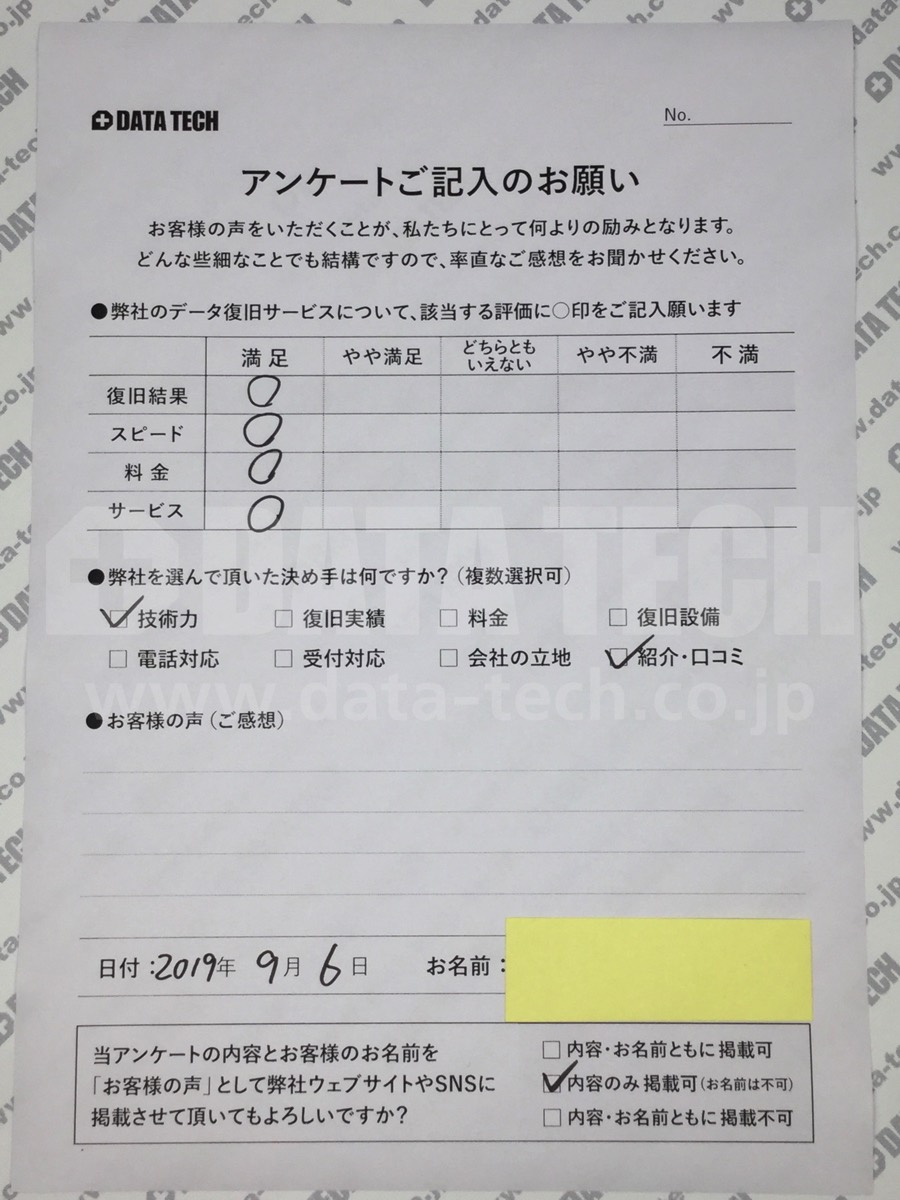 DATA TECH
No.
アンケートご記入のお願い
お客様の声をいただくことが、私たちにとって何よりの励みとなります。
どんな些細なことでも結構ですので、率直なご感想をお聞かせください。
●弊社のデータ復旧サービスについて、該当する評価に○印をご記入願います
満足 やや満足 どちらともいえない やや不満 不満
復旧結果 ○
スピード ○
料金 ○
サービス ○
DATA TECH
●弊社を選んで頂いた決め手は何ですか?(複数選択可)
☑ 技術力 □ 復旧実績 □ 料金 □ 復旧設備
□ 電話対応 □ 受付対応 □ 会社の立地 ☑ 紹介・口コミ
www.data-tech.co.jp
●お客様の声(ご感想)
日付:2019年 9月 6日 お名前:
当アンケートの内容とお客様のお名前を
「お客様の声」として弊社ウェブサイトやSNSに
掲載させて頂いてもよろしいですか?
□ 内容・お名前ともに掲載可
☑ 内容のみ掲載可(お名前は不可)
□ 内容・お名前ともに掲載不可